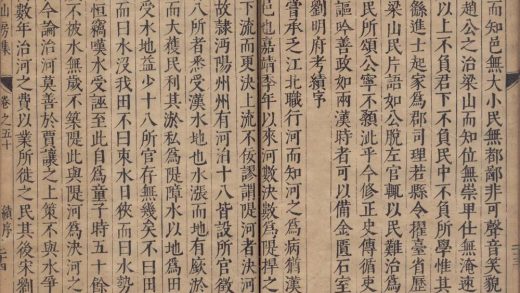 而知邑無大小民無都鄙非可聲音笑貌
趙公之治梁山而知位無崇卑仕無淹速
以上不負君下不負民中不負所學惟其
餘進士起家為郡司理若縣令擢臺省歷
梁山民片語如公脫左官輒以民難治為
民所頌公寧不顙泚乎今修正史傳循吏
謳吟善政如兩漢時者可以備金匱石室
劉明府考績序
嘗承之江北職行河而知河之為病猶漢
邑也嘉靖季年以來河數決數為隄捍之
下流而更決上流不佞謬謂隄河者決河
故隸沔陽州州有河泊十八皆設所官徵
八所者悉受漢水地也水漲而地有厫淤
而大獲民利其淤私為隄障水以地為田
受水地益少十八所官存無幾矣不曰田
而曰水沒我田不曰束水曰狹而曰水勢
恒竊嘆水受誣至此自為童子時五十餘
不被水無歲不築隄此與隄河為決河之
今論治河莫善於賈讓之上策不與水爭
數年治河之費以業所徙之民其後宋劉
山房集
卷之五十
績序